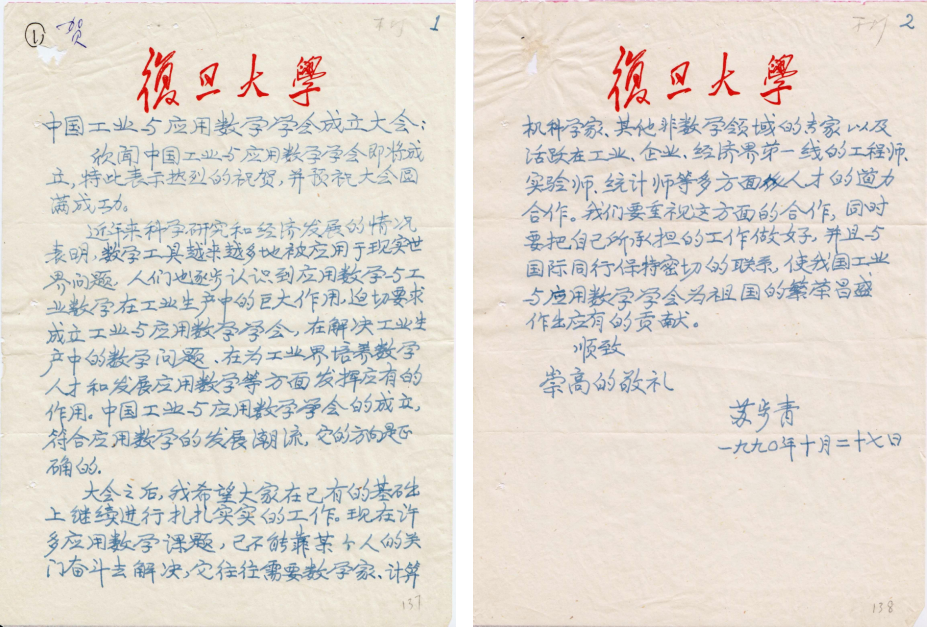 ① 贺
1
復旦大學
中国工业与应用数学学会成立大会:
欣闻中国工业与应用数学学会即将成
立,特此表示热烈的祝贺,并预祝大会圆
满成功。
近年来科学研究和经济发展的情况
表明,数学工具越来越多地被应用于现实世
界问题,人们也逐步认识到应用数学与工
业数学在工业生产中的巨大作用,迫切要求
成立工业与应用数学学会,在解决工业生
产中的数学问题、在为工业界培养数学
人才和发展应用数学等方面发挥应有的
作用。中国工业与应用数学学会的成立,
符合应用数学的发展潮流,它的方向是正
确的.
大会之后,我希望大家在已有的基础
上继续进行扎扎实实的工作。现在许
多应用数学课题,已不能靠某个人的关
门奋斗去解决,它往往需要数学家、计算
137
2
復旦大學
机科学家、其他非数学领域的专家以及
活跃在工业、企业、经济界第一线的工程师、
实验师、统计师等多方面人才的通力
合作。我们要重视这方面的合作,同时
要把自己所承担的工作做好,并且与
国际同行保持密切的联系,使我国工业
与应用数学学会为祖国的繁荣昌盛
作出应有的贡献。
顺致
崇高的敬礼
苏步青
一九九〇年十月二十七日
138